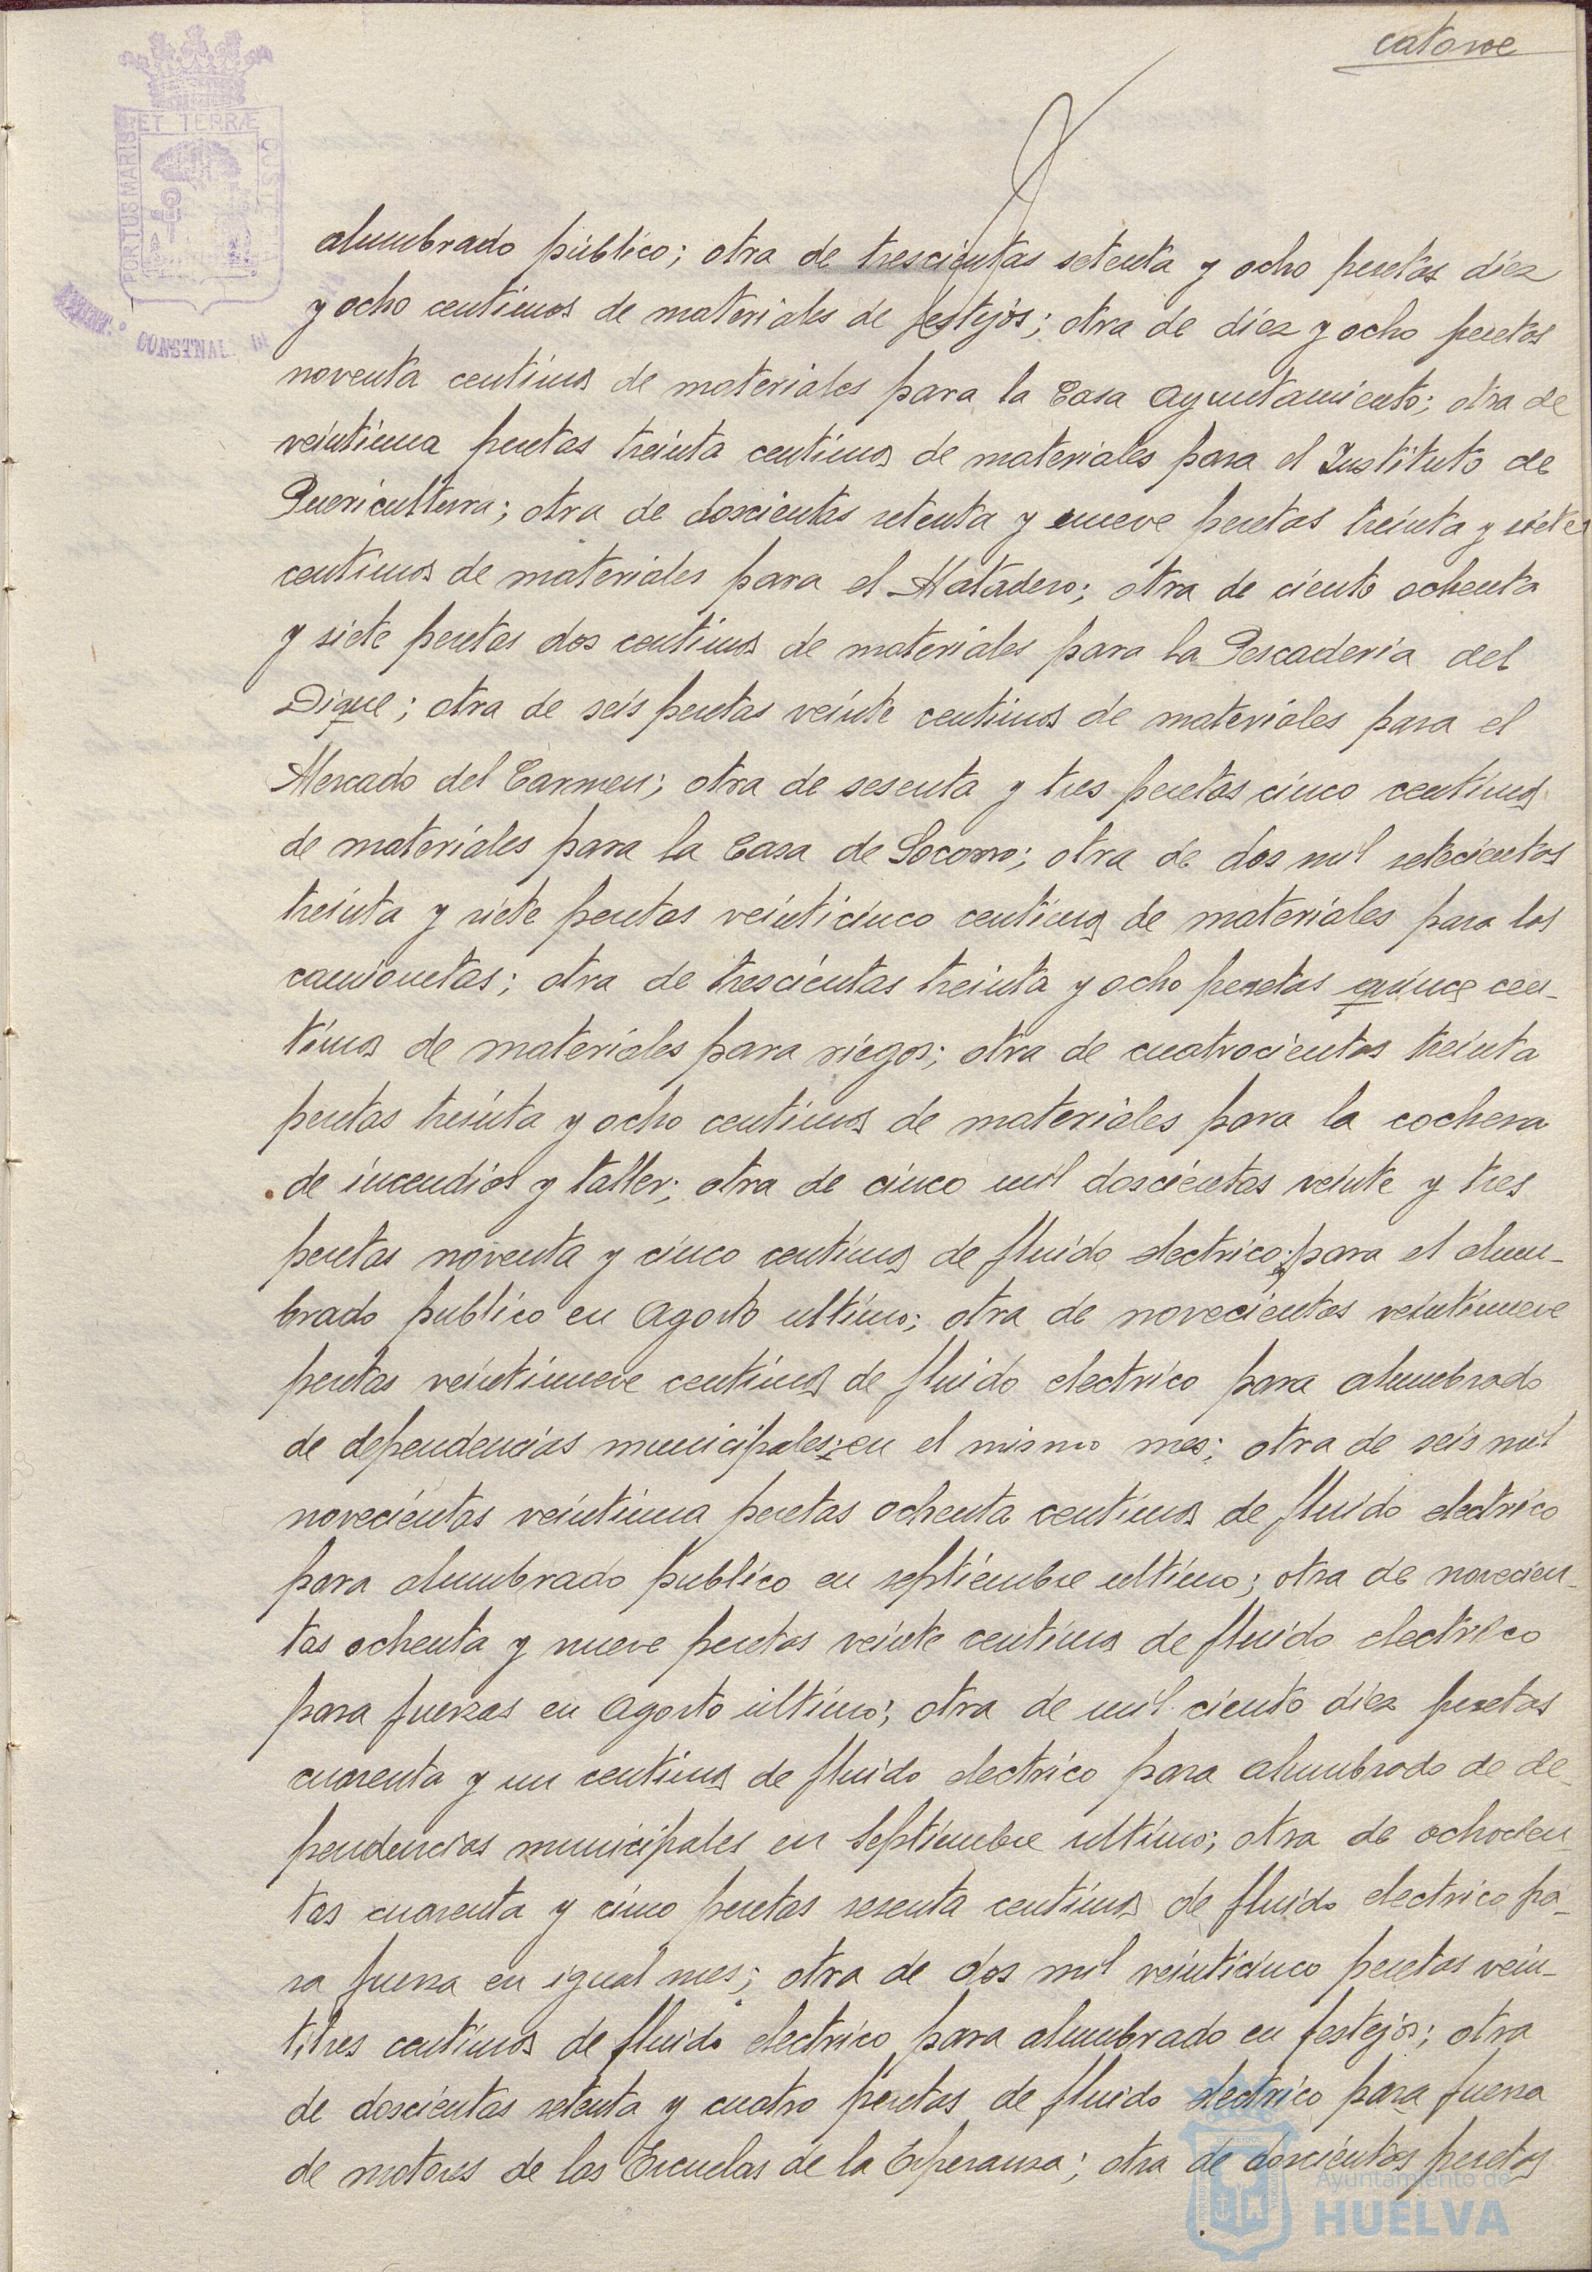 catorce
ET TERRÆ
PORTUS MARIS
CUSTODIA
alumbrado público; otra de trescientas setenta y ocho pesetas diez
y ocho centimos de materiales de festejos; otra de diez y ocho pesetas
noventa centimos de materiales para la Casa Ayuntamiento; otra de
veintiuna pesetas treinta centimos de materiales para el Instituto de
Puericultura; otra de doscientas setenta y nueve pesetas treinta y siete
centimos de materiales para el Matadero; otra de ciento ochenta
y siete pesetas dos centimos de materiales para la Pescaderia del
Dique; otra de seis pesetas veinte centimos de materiales para el
Mercado del Carmen; otra de sesenta y tres pesetas cinco centimos
de materiales para la Casa de Socorro; otra de dos mil setecientas
treinta y siete pesetas veinticinco centimos de materiales para las
camionetas; otra de trescientas treinta y ocho pesetas quince cen-
timos de materiales para riegos; otra de cuatrocientas treinta
pesetas treinta y ocho centimos de materiales para la cochera
de incendios y taller; otra de cinco mil doscientas veinte y tres
pesetas noventa y cinco centimos de fluido electrico para el alum-
brado publico en Agosto ultimo; otra de novecientas veintinueve
pesetas veintinueve centimos de fluido electrico para alumbrado
de dependencias municipales en el mismo mes; otra de seis mil
novecientas veintiuna pesetas ochenta centimos de fluido electrico
para alumbrado publico en septiembre ultimo; otra de novecien-
tas ochenta y nueve pesetas veinte centimos de fluido electrico
para fuerzas en Agosto ultimo; otra de mil ciento diez pesetas
cuarenta y un centimos de fluido electrico para alumbrado de de-
pendencias municipales en Septiembre ultimo; otra de ochocien-
tas cuarenta y cinco pesetas sesenta centimos de fluido electrico pa-
ra fuerza en igual mes; otra de dos mil veinticinco pesetas vein-
titres centimos de fluido electrico para alumbrado en festejos; otra
de doscientas setenta y cuatro pesetas de fluido electrico para fuerza
de motores de las Escuelas de la Esperanza; otra de doscientas pesetas
Ayuntamiento de
HUELVA